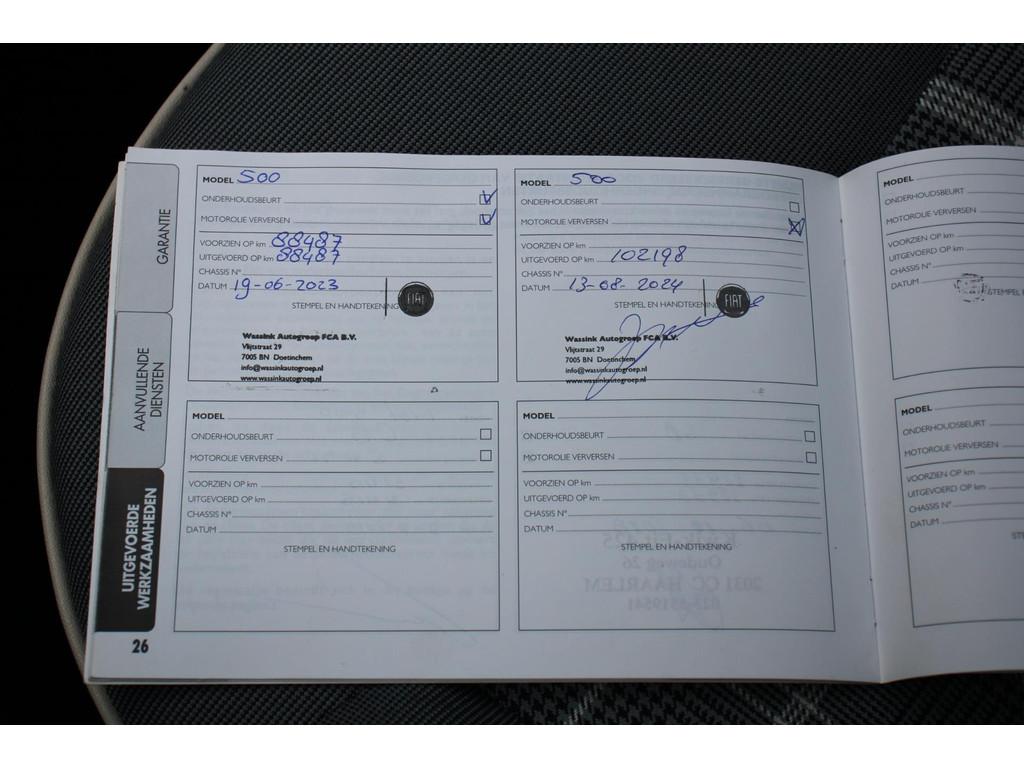 GARANTIE
AANVULLENDE
DIENSTEN
UITGEVOERDE
WERKZAAMHEDEN
26
MODEL 500
ONDERHOUDSBEURT
MOTOROLIE VERVERSEN
VOORZIEN OP km 88487
UITGEVOERD OP km 88487
CHASSIS N°
DATUM 19-06-2023
STEMPEL EN HANDTEKENING
FIAT
Wassink Autogroep FCA B.V.
Vlijtstraat 29
7005 BN Doetinchem
info@wassinkautogroep.nl
www.wassinkautogroep.nl
MODEL 500
ONDERHOUDSBEURT
MOTOROLIE VERVERSEN
VOORZIEN OP km
UITGEVOERD OP km 102198
CHASSIS N°
DATUM 13-08-2024
STEMPEL EN HANDTEKENING
FIAT
Wassink Autogroep FCA B.V.
Vlijtstraat 29
7005 BN Doetinchem
info@wassinkautogroep.nl
www.wassinkautogroep.nl
MODEL
ONDERHOUDSBEURT
MOTOROLIE VERVERSEN
VOORZIEN OP km
UITGEVOERD OP km
CHASSIS N°
DATUM
STEMPEL EN HANDTEKENING
MODEL
ONDERHOUDSBEURT
MOTOROLIE VERVERSEN
VOORZIEN OP km
UITGEVOERD OP km
CHASSIS N°
DATUM
STEMPEL EN HANDTEKENING
Oudeweg 26
2031 CC HAARLEM
MODEL
ONDERHOUDSBEURT
MOTOROLIE VERVERSEN
VOORZIEN OP km
UITGEVOERD OP km
CHASSIS N°
DATUM
STEMPEL E
MODEL
ONDERHOUDSBEURT
MOTOROLIE VERVERSEN
VOORZIEN OP km
UITGEVOERD OP km
CHASSIS N°
DATUM